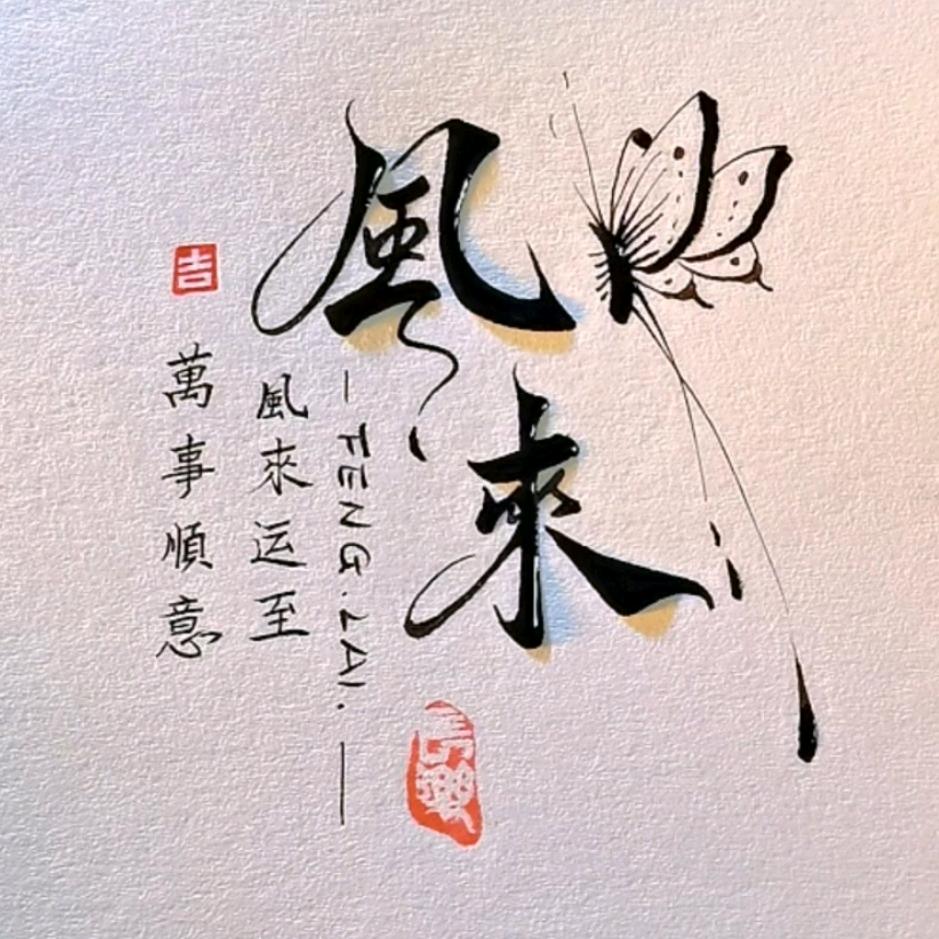 風來
—FENG.LAI.—
風來运至
萬事順意
吉